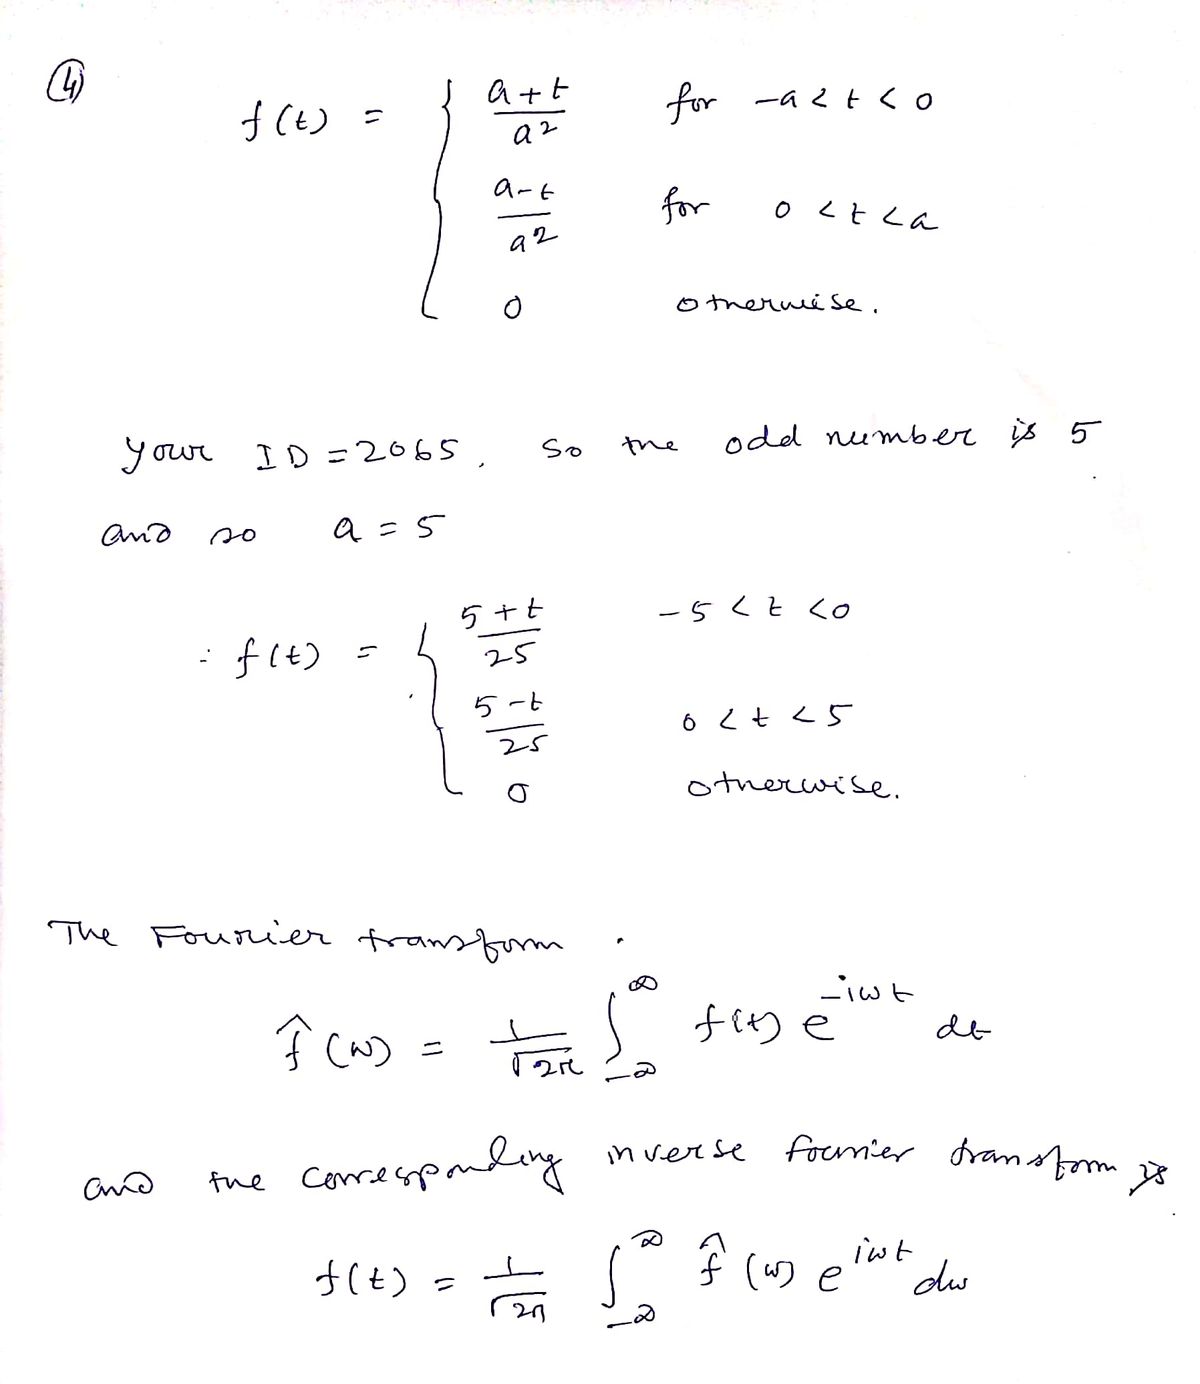 ④
f(t) = { (a+t)/a² for -a < t < 0
(a-t)/a² for 0 < t < a
0 otherwise.
your ID = 2065, so the odd number is 5
and so a = 5
∴ f(t) = { (5+t)/25 -5 < t < 0
(5-t)/25 0 < t < 5
0 otherwise.
The Fourier transform.
f̂(w) = 1/√2π ∫_{-∞}^{∞} f(t) e^{-iwt} dt
and the corresponding inverse fourier transform is
f(t) = 1/√2π ∫_{-∞}^{∞} f̂(w) e^{iwt} dw